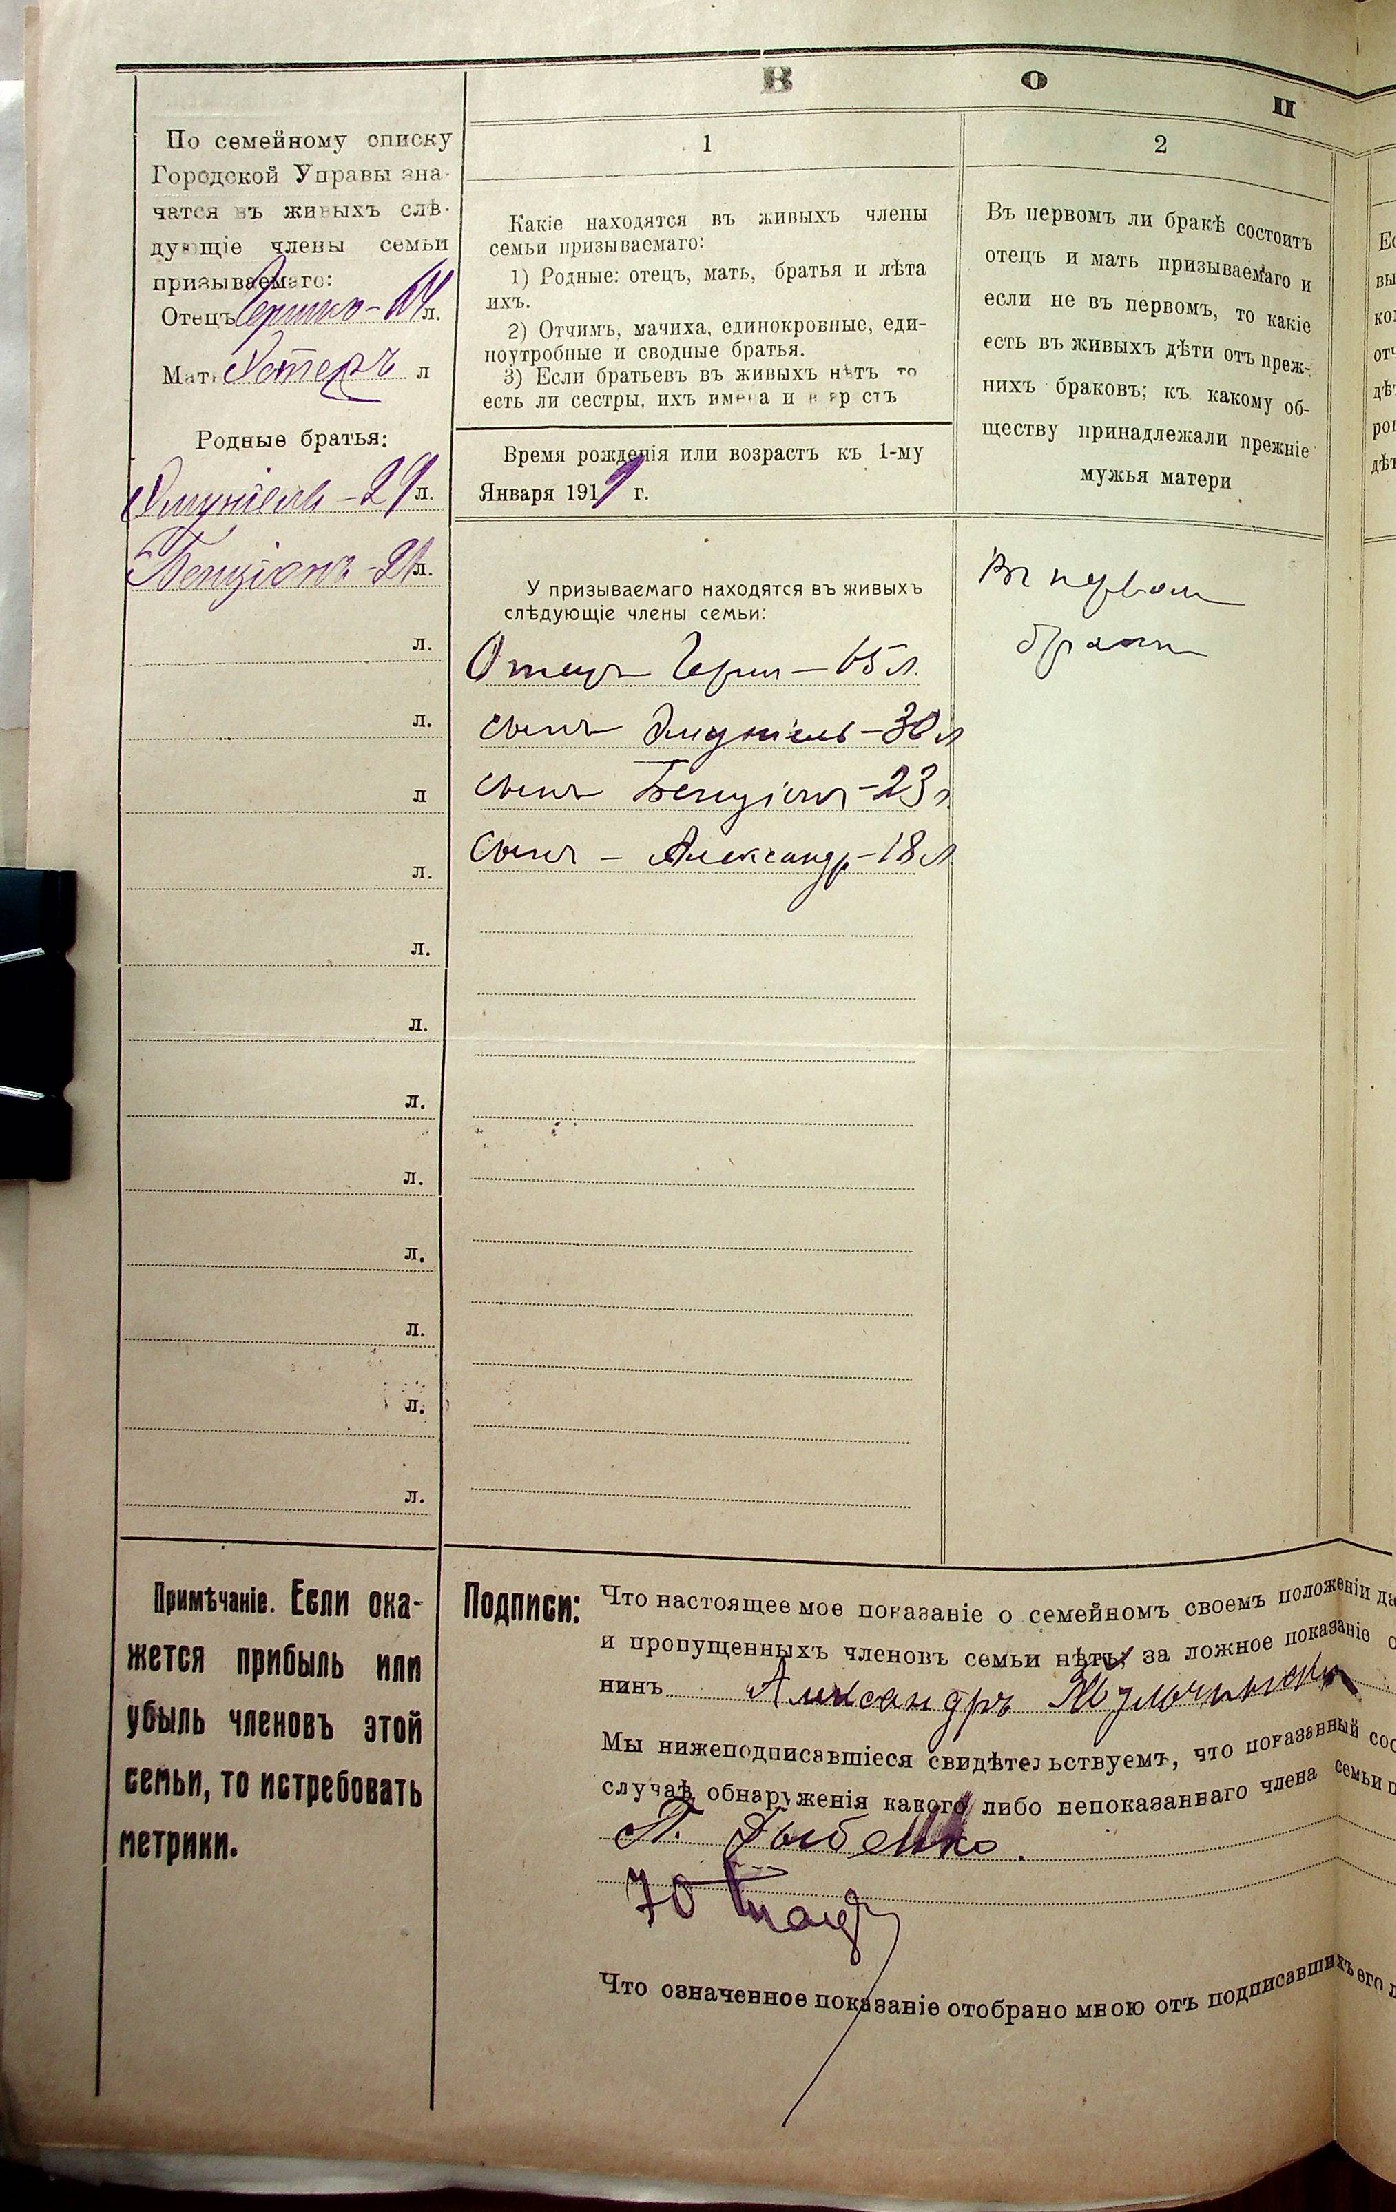 В О П
По семейному списку
Городской Управы зна-
чатся въ живыхъ слѣ-
дующіе члены семьи
призываемаго:
Отецъ Гершко - 64 л.
Мат. Эстеръ л
Родные братья:
Эмунiель - 29 л.
Бенціонъ - 21 л.
л.
л.
л
л.
л.
л.
л.
л.
л.
л.
л.
л.
1
Какіе находятся въ живыхъ члены
семьи призываемаго:
1) Родные: отецъ, мать, братья и лѣта
ихъ.
2) Отчимъ, мачиха, единокровные, еди-
ноутробные и сводные братья.
3) Если братьевъ въ живыхъ нѣтъ то
есть ли сестры, ихъ имена и
Время рожденія или возрастъ къ 1-му
Января 1919 г.
У призываемаго находятся въ живыхъ
слѣдующіе члены семьи:
Отецъ Герш - 65 л.
сынъ Эмуніель - 30 л
сынъ Бенціон - 23 л
Сынъ - Александр - 18 л
2
Въ первомъ ли бракѣ состоитъ
отецъ и мать призываемаго и
если не въ первомъ, то какіе
есть въ живыхъ дѣти отъ преж-
нихъ браковъ; къ какому об-
ществу принадлежали прежніе
мужья матери
Въ первом
браки
Примѣчаніе. Если ока-
жется прибыль или
убыль членовъ этой
семьи, то истребовать
метрики.
Подписи: Что настоящее мое показаніе о семейномъ своемъ положеніи
и пропущенныхъ членовъ семьи нѣтъ, за ложное показаніе
нинъ Александръ
Мы нижеподписавшіеся свидѣтельствуемъ, что показанный
случаѣ обнаруженія какого либо непоказаннаго члена семьи
П. Дыбенко.
Что означенное показаніе отобрано мною отъ подписавшихъ его